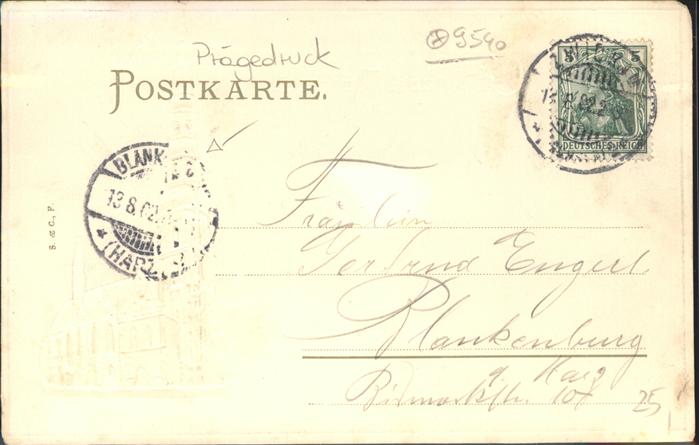 Prägedruck
9540
POSTKARTE.
5 5
DEUTSCHES REICH
BLANK
13.8.02
(HARZ
S. & C., F.
Fräulein
Gertrud Engerl
Blankenburg
a. Harz
Bismarckstr. 10
25